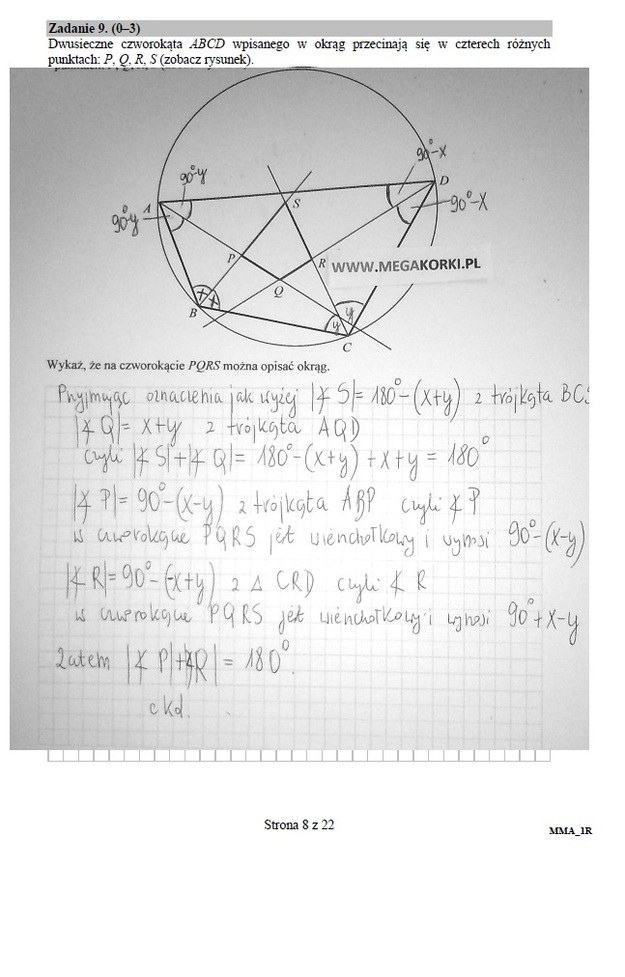 Zadanie 9. (0–3)
Dwusieczne czworokąta ABCD wpisanego w okrąg przecinają się w czterech różnych
punktach: P, Q, R, S (zobacz rysunek).
90°-x
90°-y
D
A
S
90°-x
90°y
P
R
WWW.MEGAKORKI.PL
Q
x x
B
y
y
C
Wykaż, że na czworokącie PQRS można opisać okrąg.
Przyjmując oznaczenia jak wyżej |∡ S|= 180°-(x+y) z trójkąta BCS
|∡ Q|= x+y z trójkąta AQD
czyli |∡ S|+|∡ Q|= 180°-(x+y)+x+y = 180°
|∡ P|= 90°-(x-y) z trójkąta ABP czyli ∡ P
w czworokącie PQRS jest wierzchołkowy i wynosi 90°-(x-y)
|∡ R|=90°-(-x+y) z △ CRD czyli ∡ R
w czworokącie PQRS jest wierzchołkowy i wynosi 90°+x-y
Zatem |∡ P|+|∡R| = 180°.
ckd.
Strona 8 z 22
MMA_1R